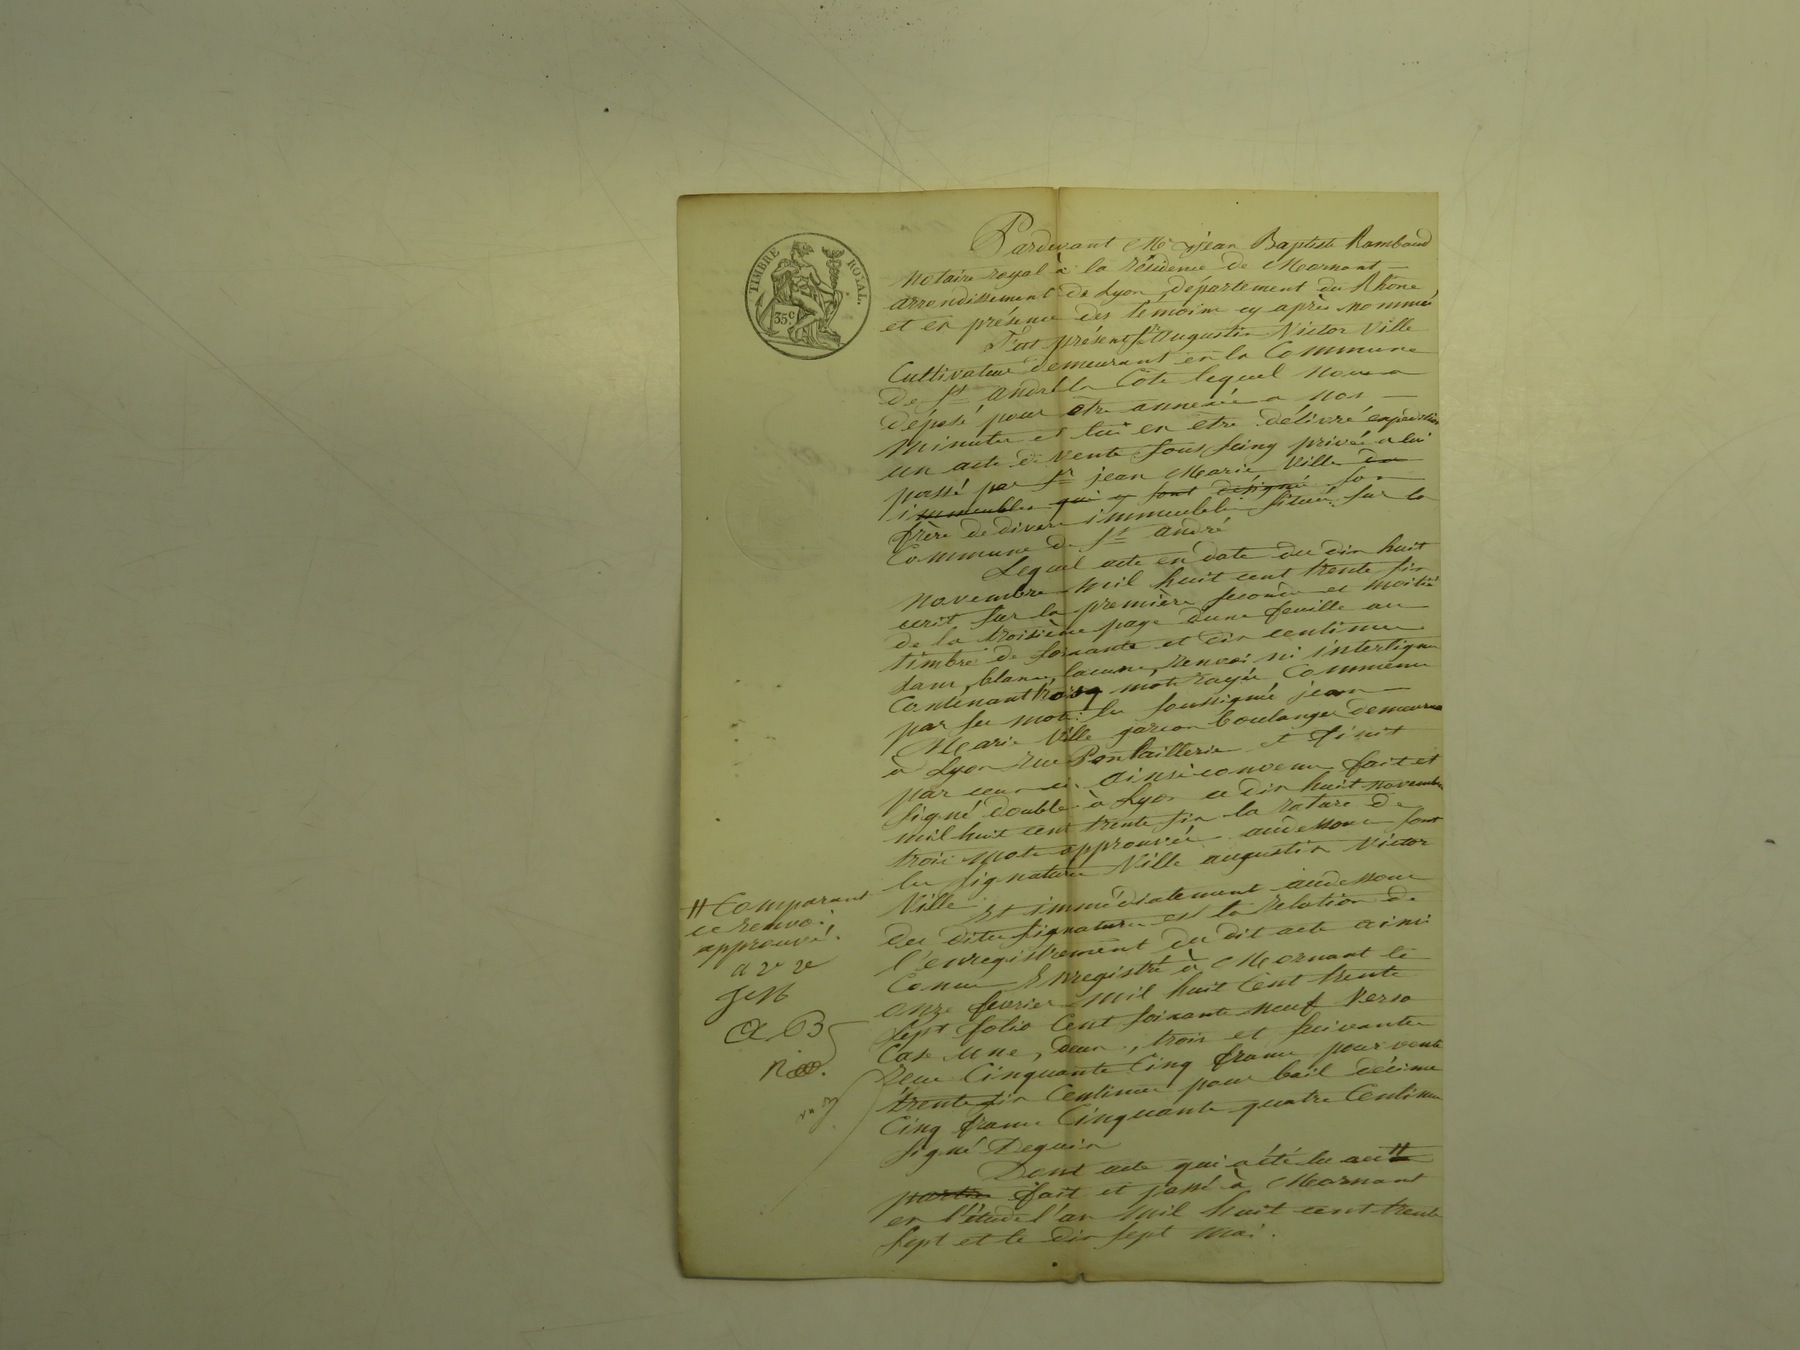 TIMBRE ROYAL.
35c
Pardevant Me jean Baptiste Rambaud
notaire royal à la résidence de Mornant
arrondissement de Lyon, département du Rhône
et en présence des témoins cy après nommé
Fut présent Sr augustin Victor Ville
Cultivateur demeurant en la Commune
de St andré la Côte lequel nous a
déposé pour être annexée a nos
minutes et lui en etre délivré expédition
un acte de vente sous seing privée a lui
passé par Sr jean Marie Ville de
immeubles qui y sont désigné son
frère de divers immeubles situés sur la
Commune de St andré
Lequel acte en date du dix huit
novembre mil huit cent trente six
ecrit sur la première seconde et moitié
de la troisième page dune feuille au
timbre de soixante et dix centimes
sans blanc, lacune, renvoi ni interligne
Contenant trois mots rayés Commence
par ses mots: les soussignés jean
Marie Ville garcon boulanger demeurant
à Lyon rue Ponteillerie et finit
par ceux ci ainsi convenu fait et
signé double à Lyon ce dix huit novembre
mil huit cent trente six la rature de
trois mots approuvée audessous sont
les signatures Ville augustin Victor
Ville Et immédiatement audessous
des dites signatures est la relation de
l'enregistrement du dit acte ainsi
Conçue Enregistré à Mornant le
onze fevrier mil huit Cent trente
sept folio Cent soixante neuf Verso
Case une, deux, trois et suivantes
Reçu Cinquante Cinq francs pour vente
trente six Centimes pour bail décime
Cinq francs Cinquante quatre Centimes
signé Deguin
Dont acte qui a été lu au #
parties fait et passé à Mornant
en l'étude l'an mil huit cent trente
sept et le dix sept mai.
# Comparant
ce renvoi
approuvé.